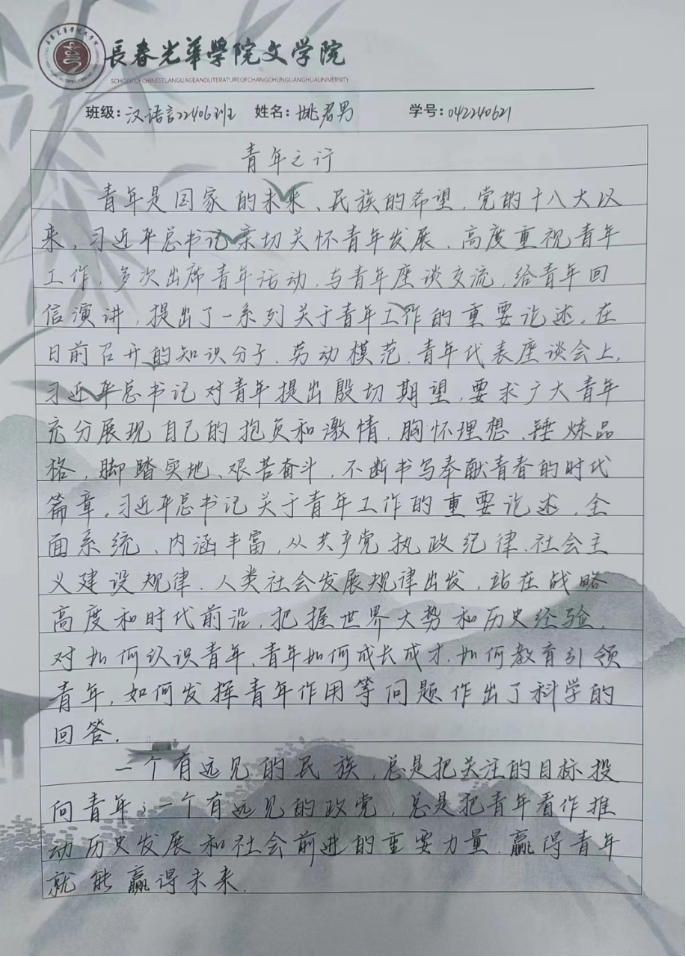 長春光華學院文学院
SCHOOL OF CHINESE LANGUAGE AND LITERATURE OF CHANGCHUN GUANGHUA UNIVERSITY
班级：汉语言22406班 姓名：姚君男 学号：042240621
青年之行
青年是国家的未来、民族的希望，党的十八大以
来，习近平总书记亲切关怀青年发展，高度重视青年
工作，多次出席青年活动，与青年座谈交流，给青年回
信演讲，提出了一系列关于青年工作的重要论述。在
日前召开的知识分子、劳动模范、青年代表座谈会上，
习近平总书记对青年提出殷切期望，要求广大青年
充分展现自己的抱负和激情，胸怀理想、锤炼品
格，脚踏实地、艰苦奋斗，不断书写奉献青春的时代
篇章，习近平总书记关于青年工作的重要论述，全
面系统、内涵丰富，从共产党执政纪律、社会主
义建设规律、人类社会发展规律出发，站在战略
高度和时代前沿，把握世界大势和历史经验，
对如何认识青年、青年如何成长成才、如何教育引领
青年，如何发挥青年作用等问题作出了科学的
回答。
一个有远见的民族，总是把关注的目标投
向青年；一个有远见的政党，总是把青年看作推
动历史发展和社会前进的重要力量，赢得青年
就能赢得未来.